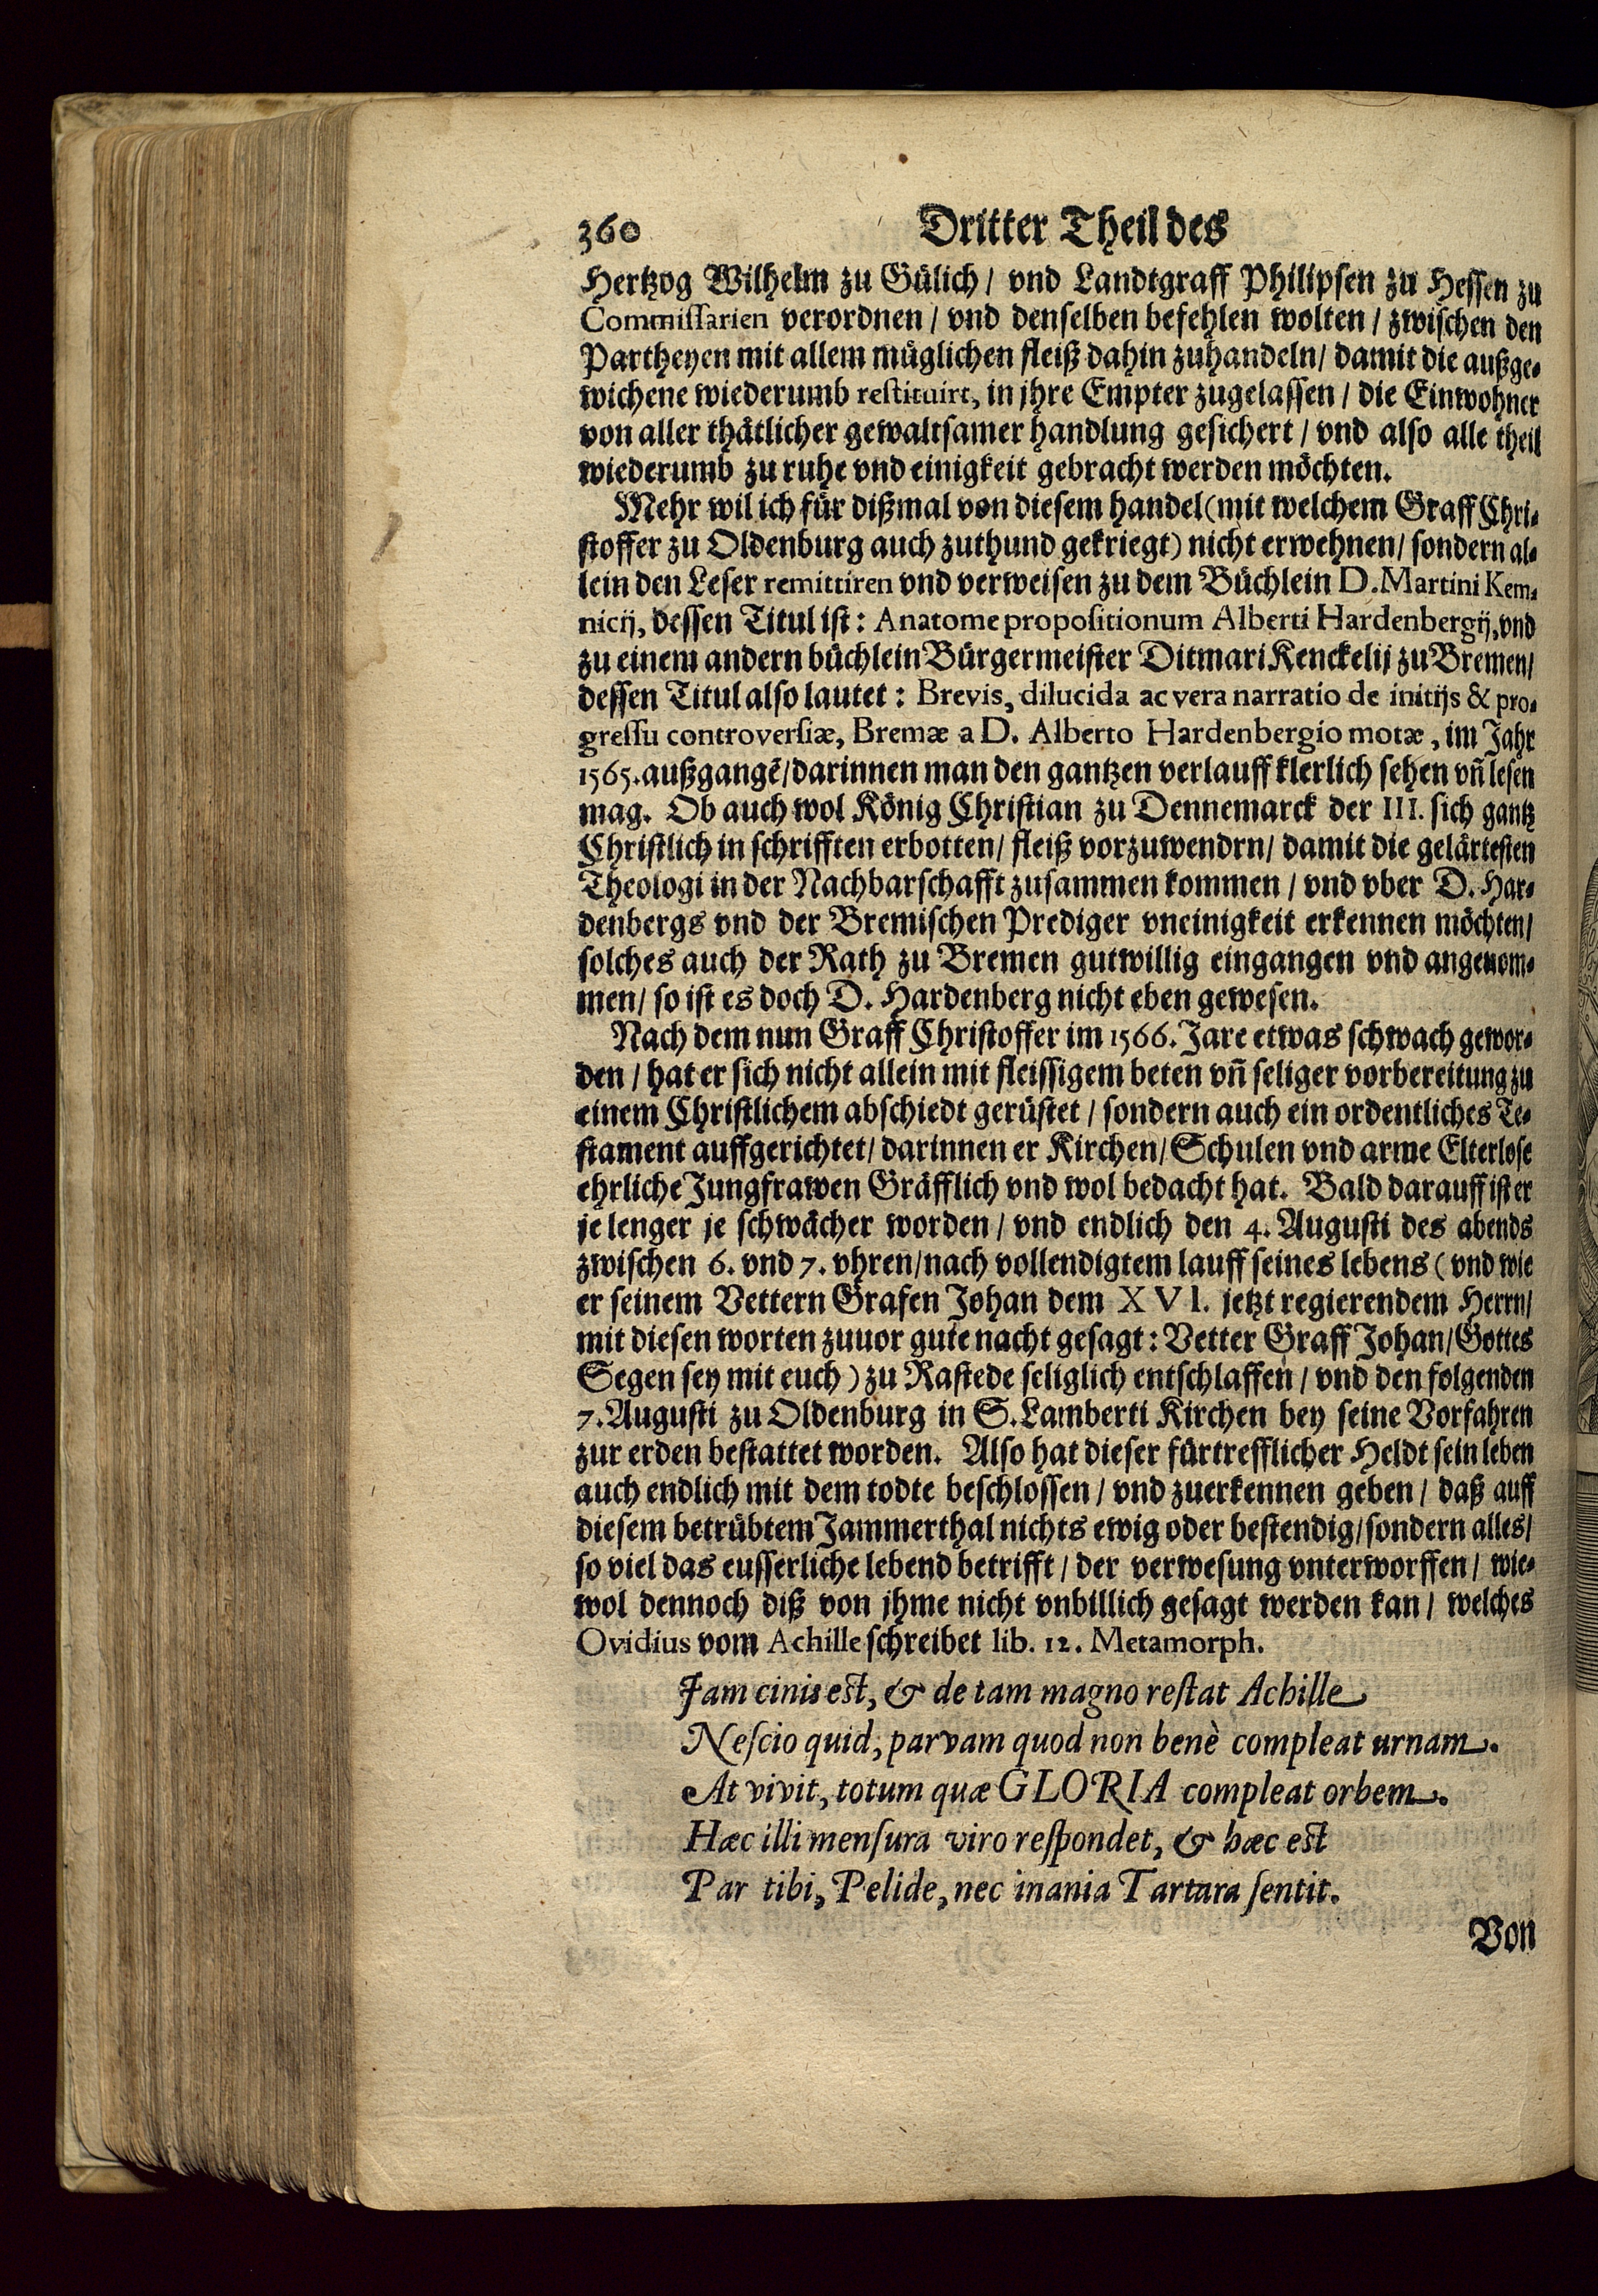 360 Dritter Theil des
Hertzog Wilhelm zu Gülich / vnd Landtgraff Philipsen zu Hessen zu
Commissarien verordnen / vnd denselben befehlen wolten / zwischen den
Partheyen mit allem müglichen fleiß dahin zuhandeln / damit die außge-
wichene wiederumb restituirt, in jhre Empter zugelassen / die Einwohner
von aller thätlicher gewaltsamer handlung gesichert / vnd also alle theil
wiederumb zu ruhe vnd einigkeit gebracht werden möchten.
Mehr wil ich für dißmal von diesem handel (mit welchem Graff Chri-
stoffer zu Oldenburg auch zuthund gekriegt) nicht erwehnen / sondern al-
lein den Leser remittiren vnd verweisen zu dem Büchlein D. Martini Kem-
nicij, dessen Titul ist: Anatome propositionum Alberti Hardenbergij, vnd
zu einem andern büchlein Bürgermeister Ditmari Kenckelij zu Bremen /
dessen Titul also lautet: Brevis, dilucida ac vera narratio de initijs & pro-
gressu controversiæ, Bremæ a D. Alberto Hardenbergio motæ, im Jahr
1565. außgangē / darinnen man den gantzen verlauff klerlich sehen vñ lesen
mag. Ob auch wol König Christian zu Dennemarck der III. sich gantz
Christlich in schrifften erbotten / fleiß vorzuwendrn / damit die gelärtesten
Theologi in der Nachbarschafft zusammen kommen / vnd vber D. Har-
denbergs vnd der Bremischen Prediger vneinigkeit erkennen möchten /
solches auch der Rath zu Bremen gutwillig eingangen vnd angenom-
men / so ist es doch D. Hardenberg nicht eben gewesen.
Nach dem nun Graff Christoffer im 1566. Jare etwas schwach gewor-
den / hat er sich nicht allein mit fleissigem beten vñ seliger vorbereitung zu
einem Christlichem abschiedt gerüstet / sondern auch ein ordentliches Te-
stament auffgerichtet / darinnen er Kirchen / Schulen vnd arme Elterlose
ehrliche Jungfrawen Gräfflich vnd wol bedacht hat. Bald darauff ist er
je lenger je schwächer worden / vnd endlich den 4. Augusti des abends
zwischen 6. vnd 7. vhren / nach vollendigtem lauff seines lebens (vnd wie
er seinem Vettern Grafen Johan dem XVI. jetzt regierendem Herrn /
mit diesen worten zuuor gute nacht gesagt: Vetter Graff Johan / Gottes
Segen sey mit euch) zu Rastede seliglich entschlaffen / vnd den folgenden
7. Augusti zu Oldenburg in S. Lamberti Kirchen bey seine Vorfahren
zur erden bestattet worden. Also hat dieser fürtrefflicher Heldt sein leben
auch endlich mit dem todte beschlossen / vnd zuerkennen geben / daß auff
diesem betrübtem Jammerthal nichts ewig oder bestendig / sondern alles /
so viel das eusserliche lebend betrifft / der verwesung vnterworffen / wie-
wol dennoch diß von jhme nicht vnbillich gesagt werden kan / welches
Ovidius vom Achille schreibet lib. 12. Metamorph.
Jam cinis est, & de tam magno restat Achille
Nescio quid, parvam quod non benè compleat urnam.
At vivit, totum quæ GLORIA compleat orbem.
Hæc illi mensura viro respondet, & hæc est
Par tibi, Pelide, nec inania Tartara sentit.
Von